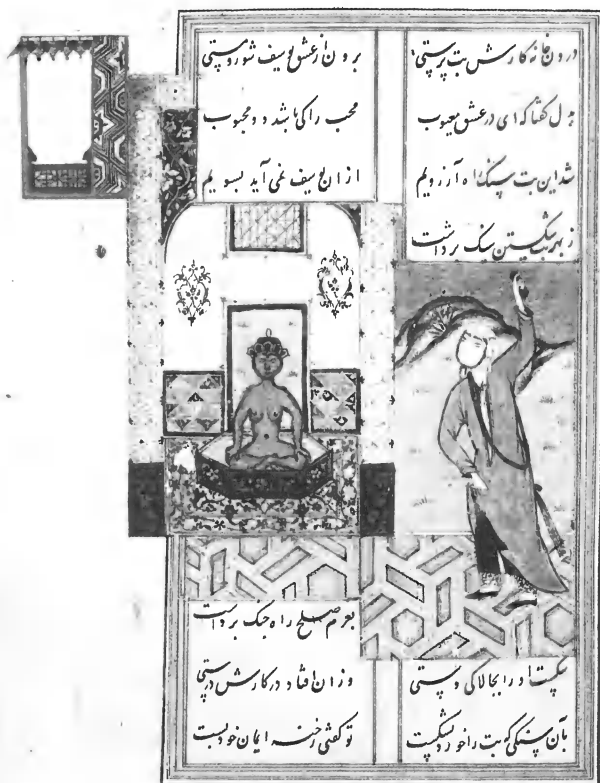 درون خانه کارش بت پرستی برون از عشق یوسف شور و مستی
بدل گفتا که ای در عشق معیوب محب را کی باشد دو محبوب
شد این بت سنگ راه آرزویم از ان یوسف نمی آید بسویم
ز بهر بت شکستن سنگ برداشت
بعزم صلح راه جنگ برداشت
شکست او را بچالاکی و چستی وزان افتاد در کارش درستی
بآن سنگی که بت را خورد بشکست تو گفتی رخنه ایمان خود بست